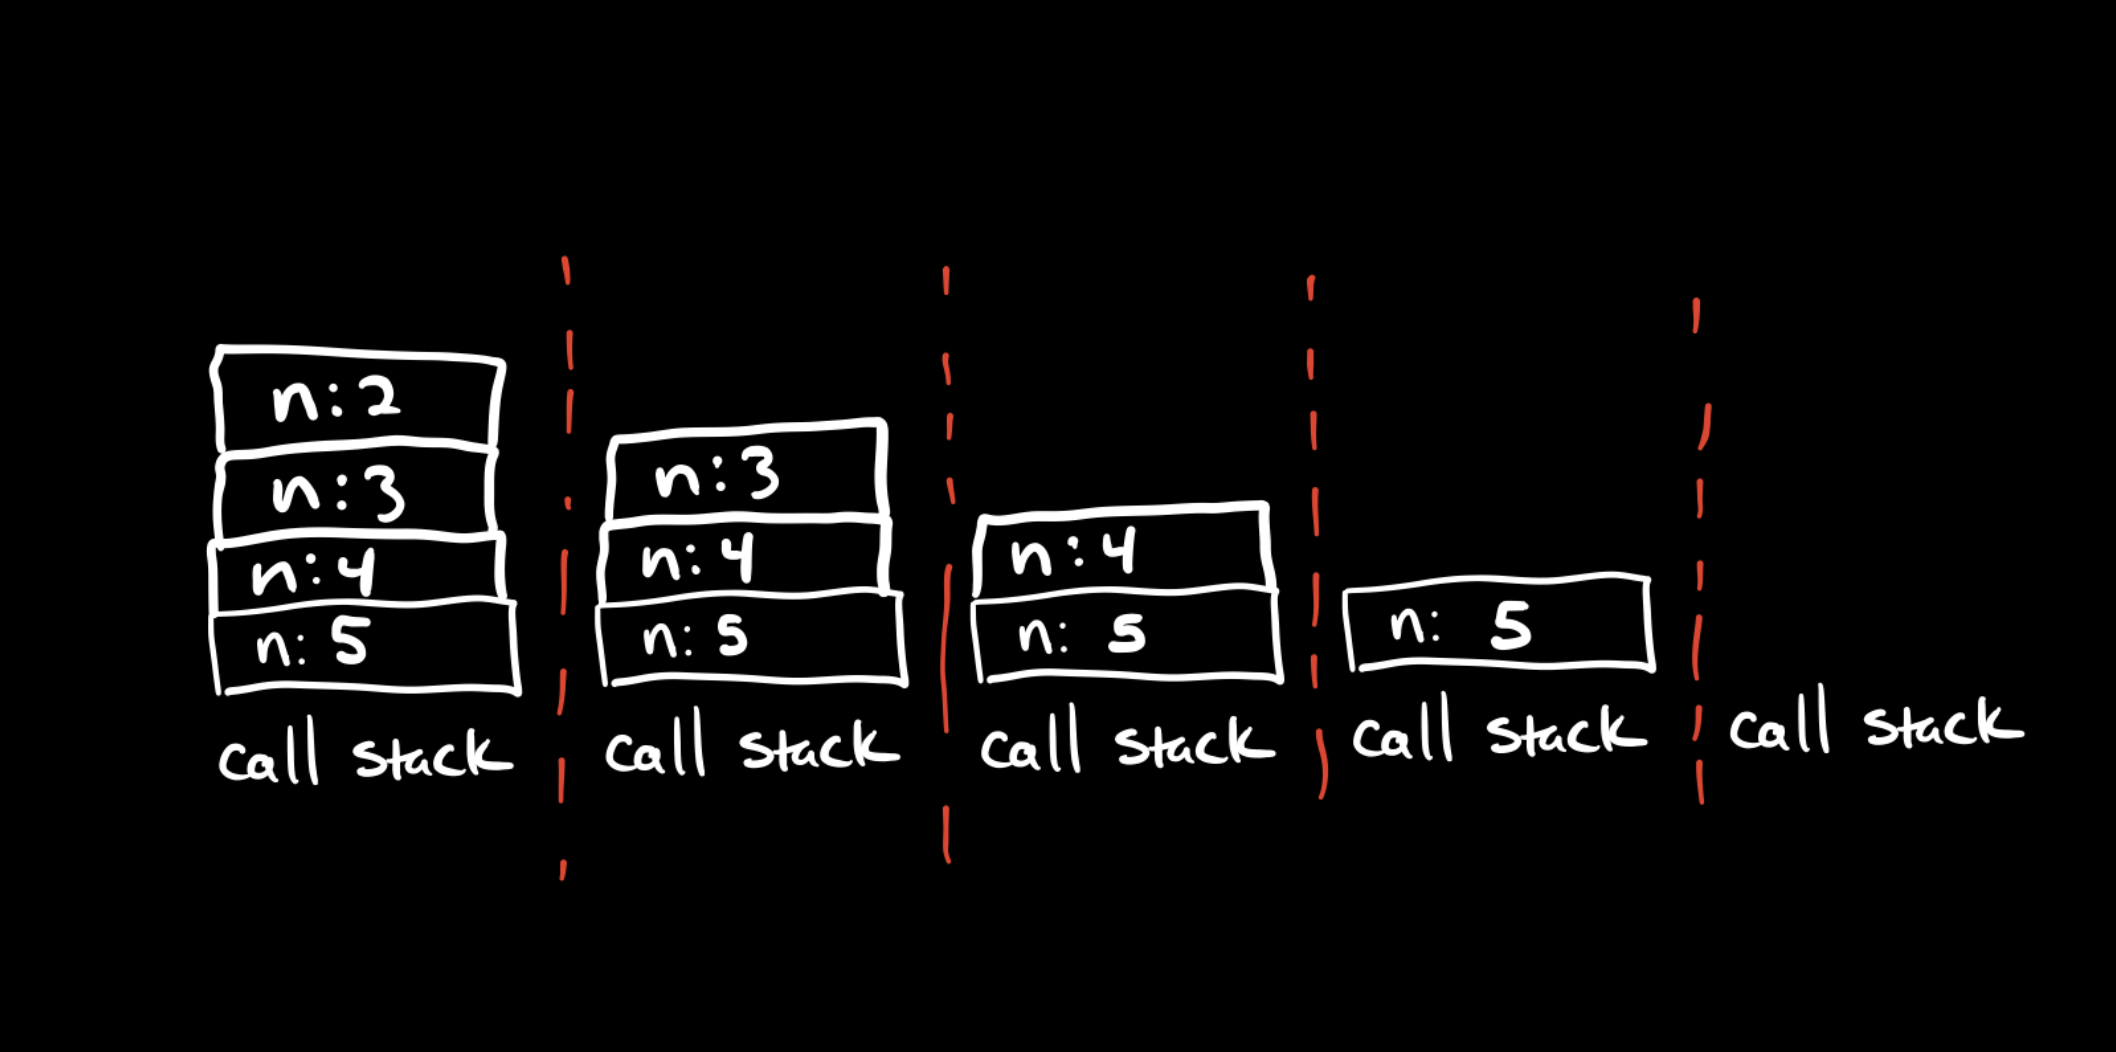 n:2
n:3
n:4
n: 5
call stack
n:3
n:4
n: 5
call stack
n:4
n: 5
call stack
n: 5
call stack
call stack